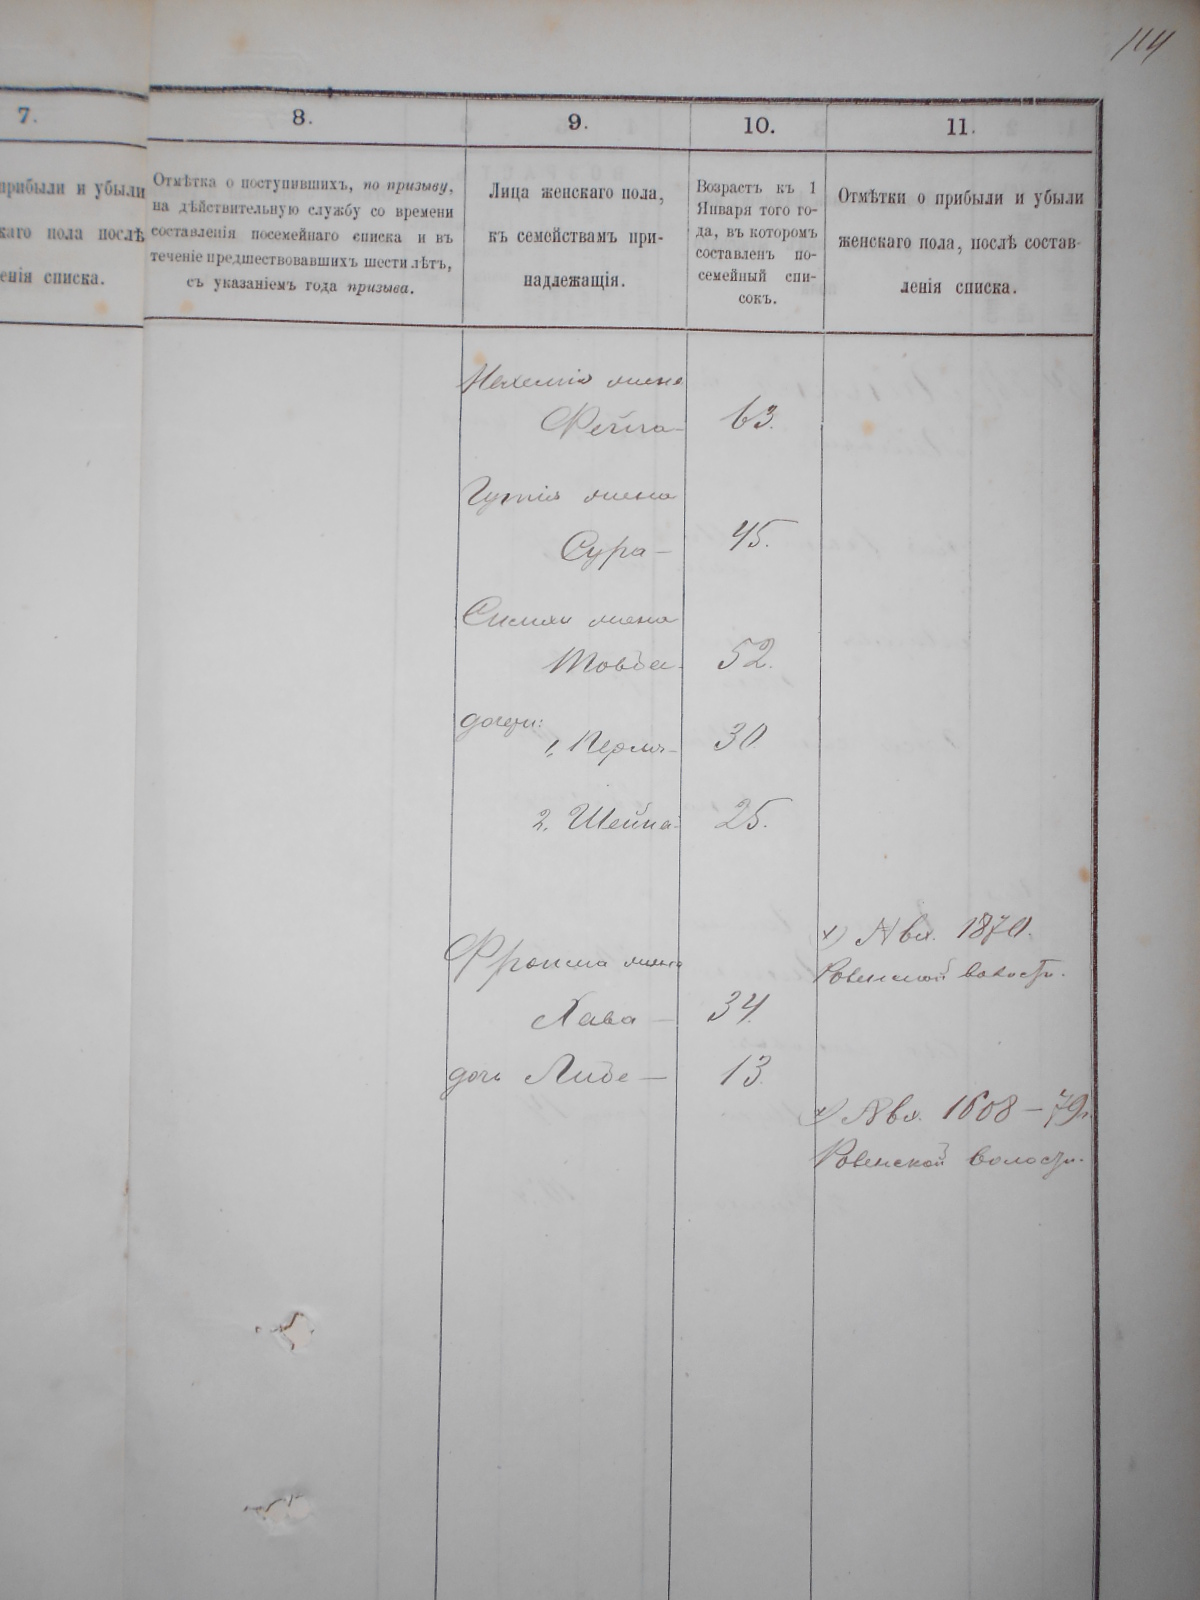 114
7.
8.
9.
10.
11.
прибыли и убыли
каго пола послѣ
енія списка.
Отмѣтка о поступившихъ, по призыву,
на дѣйствительную службу со времени
составленія посемейнаго списка и въ
теченіе предшествовавшихъ шести лѣтъ,
съ указаніемъ года призыва.
Лица женскаго пола,
къ семействамъ при-
надлежащія.
Возрастъ къ 1
Января того го-
да, въ которомъ
составленъ по-
семейный спи-
сокъ.
Отмѣтки о прибыли и убыли
женскаго пола, послѣ состав-
ленія списка.
Нахемія жена
Фейга — 63.
жена
Сура — 45.
жена
52.
дочери:
1, 30
2, Шейна 25.
х) № вх. 1870.
Ровенской волости.
жена
Хава — 34.
дочь Либе — 13.
х) № вх. 1608 — 79г.
Ровенской волости.